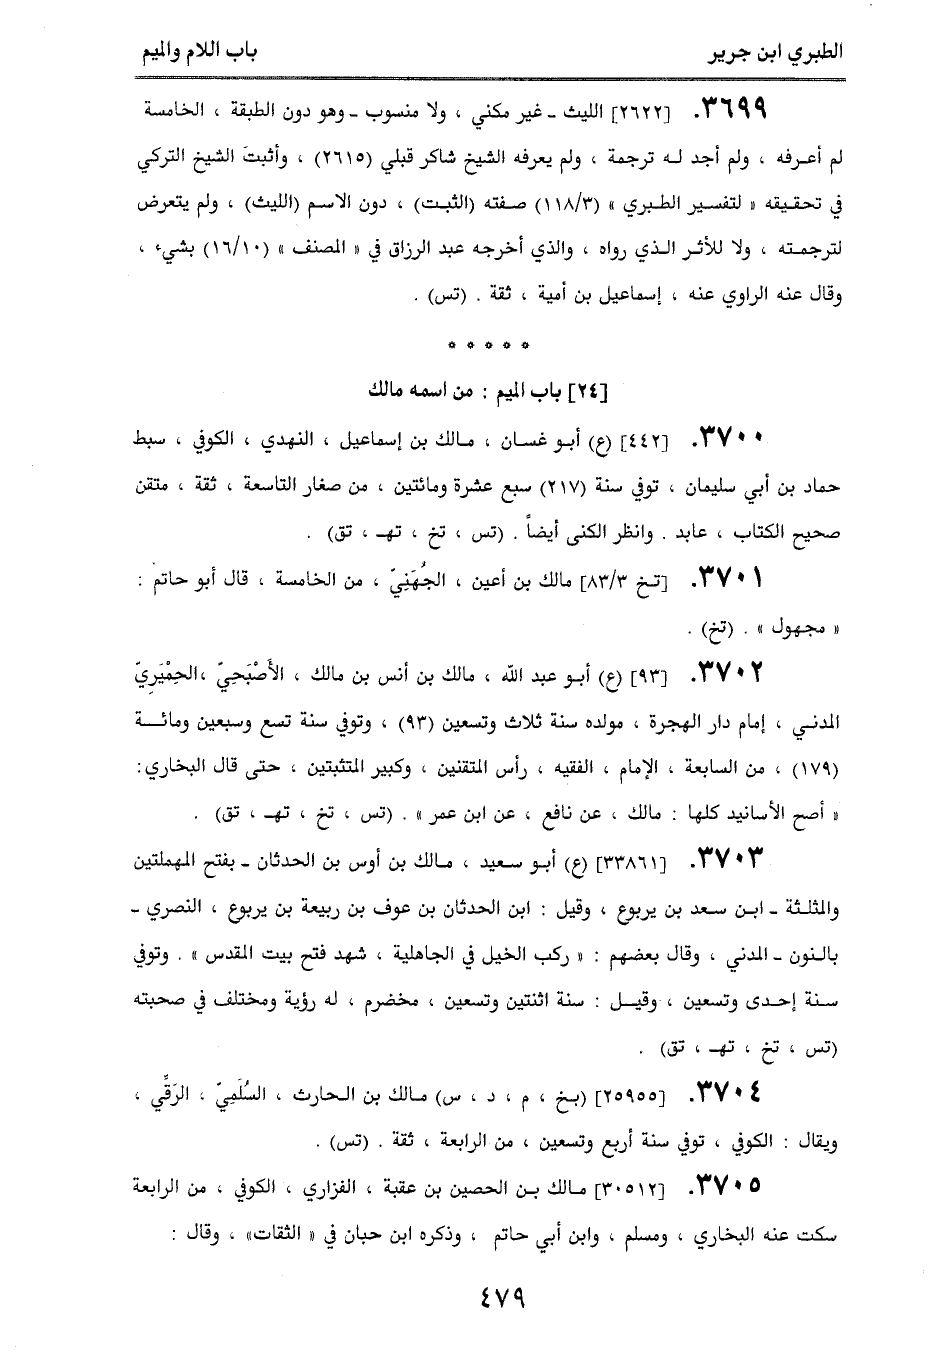 الطبري ابن جرير
باب اللام والميم
٣٦٩٩. [٢٦٢٢] الليث ـ غير مكني ، ولا منسوب ـ وهو دون الطبقة ، الخامسة
لم أعرفه ، ولم أجد له ترجمة ، ولم يعرفه الشيخ شاكر قبلي (٢٦١٥) ، وأثبتَ الشيخ التركي
في تحقيقه « لتفسير الطبري » (١١٨/٣) صفته (الثبت) ، دون الاسم (الليث) ، ولم يتعرض
لترجمته ، ولا للأثر الذي رواه ، والذي أخرجه عبد الرزاق في « المصنف » (١٦/١٠) بشيء ،
وقال عنه الراوي عنه ، إسماعيل بن أمية ، ثقة . (تس) .
* * * * *
[٢٤] باب الميم : من اسمه مالك
٣٧٠٠. [٤٤٢] (ع) أبو غسان ، مالك بن إسماعيل ، النهدي ، الكوفي ، سبط
حماد بن أبي سليمان ، توفي سنة (٢١٧) سبع عشرة ومائتين ، من صغار التاسعة ، ثقة ، متقن
صحيح الكتاب ، عابد . وانظر الكنى أيضاً . (تس ، تخ ، تهـ ، تق) .
٣٧٠١. [تخ ٨٣/٣] مالك بن أعين ، الجُهَنِيّ ، من الخامسة ، قال أبو حاتم :
« مجهول » . (تخ) .
٣٧٠٢. [٩٣] (ع) أبو عبد الله ، مالك بن أنس بن مالك ، الأَصْبَحِيّ ،الحِمْيَرِيّ
المدني ، إمام دار الهجرة ، مولده سنة ثلاث وتسعين (٩٣) ، وتوفي سنة تسع وسبعين ومائة
(١٧٩) ، من السابعة ، الإمام ، الفقيه ، رأس المتقنين ، وكبير المتثبتين ، حتى قال البخاري:
« أصح الأسانيد كلها : مالك ، عن نافع ، عن ابن عمر » . (تس ، تخ ، تهـ ، تق) .
٣٧٠٣. [٣٣٨٦١] (ع) أبو سعيد ، مالك بن أوس بن الحدثان ـ بفتح المهملتين
والمثلثة ـ ابن سعد بن يربوع ، وقيل : ابن الحدثان بن عوف بن ربيعة بن يربوع ، النصري ـ
بالنون ـ المدني ، وقال بعضهم : « ركب الخيل في الجاهلية ، شهد فتح بيت المقدس » . وتوفي
سنة إحدى وتسعين ، وقيل : سنة اثنتين وتسعين ، مخضرم ، له رؤية ومختلف في صحبته
(تس ، تخ ، تهـ ، تق) .
٣٧٠٤. [٢٥٩٥٥] (بخ ، م ، د ، س) مالك بن الحارث ، السُلَمِيّ ، الرَقِّي ،
ويقال : الكوفي ، توفي سنة أربع وتسعين ، من الرابعة ، ثقة . (تس) .
٣٧٠٥. [٣٠٥١٢] مالك بن الحصين بن عقبة ، الفزاري ، الكوفي ، من الرابعة
سكت عنه البخاري ، ومسلم ، وابن أبي حاتم ، وذكره ابن حبان في « الثقات» ، وقال :
٤٧٩